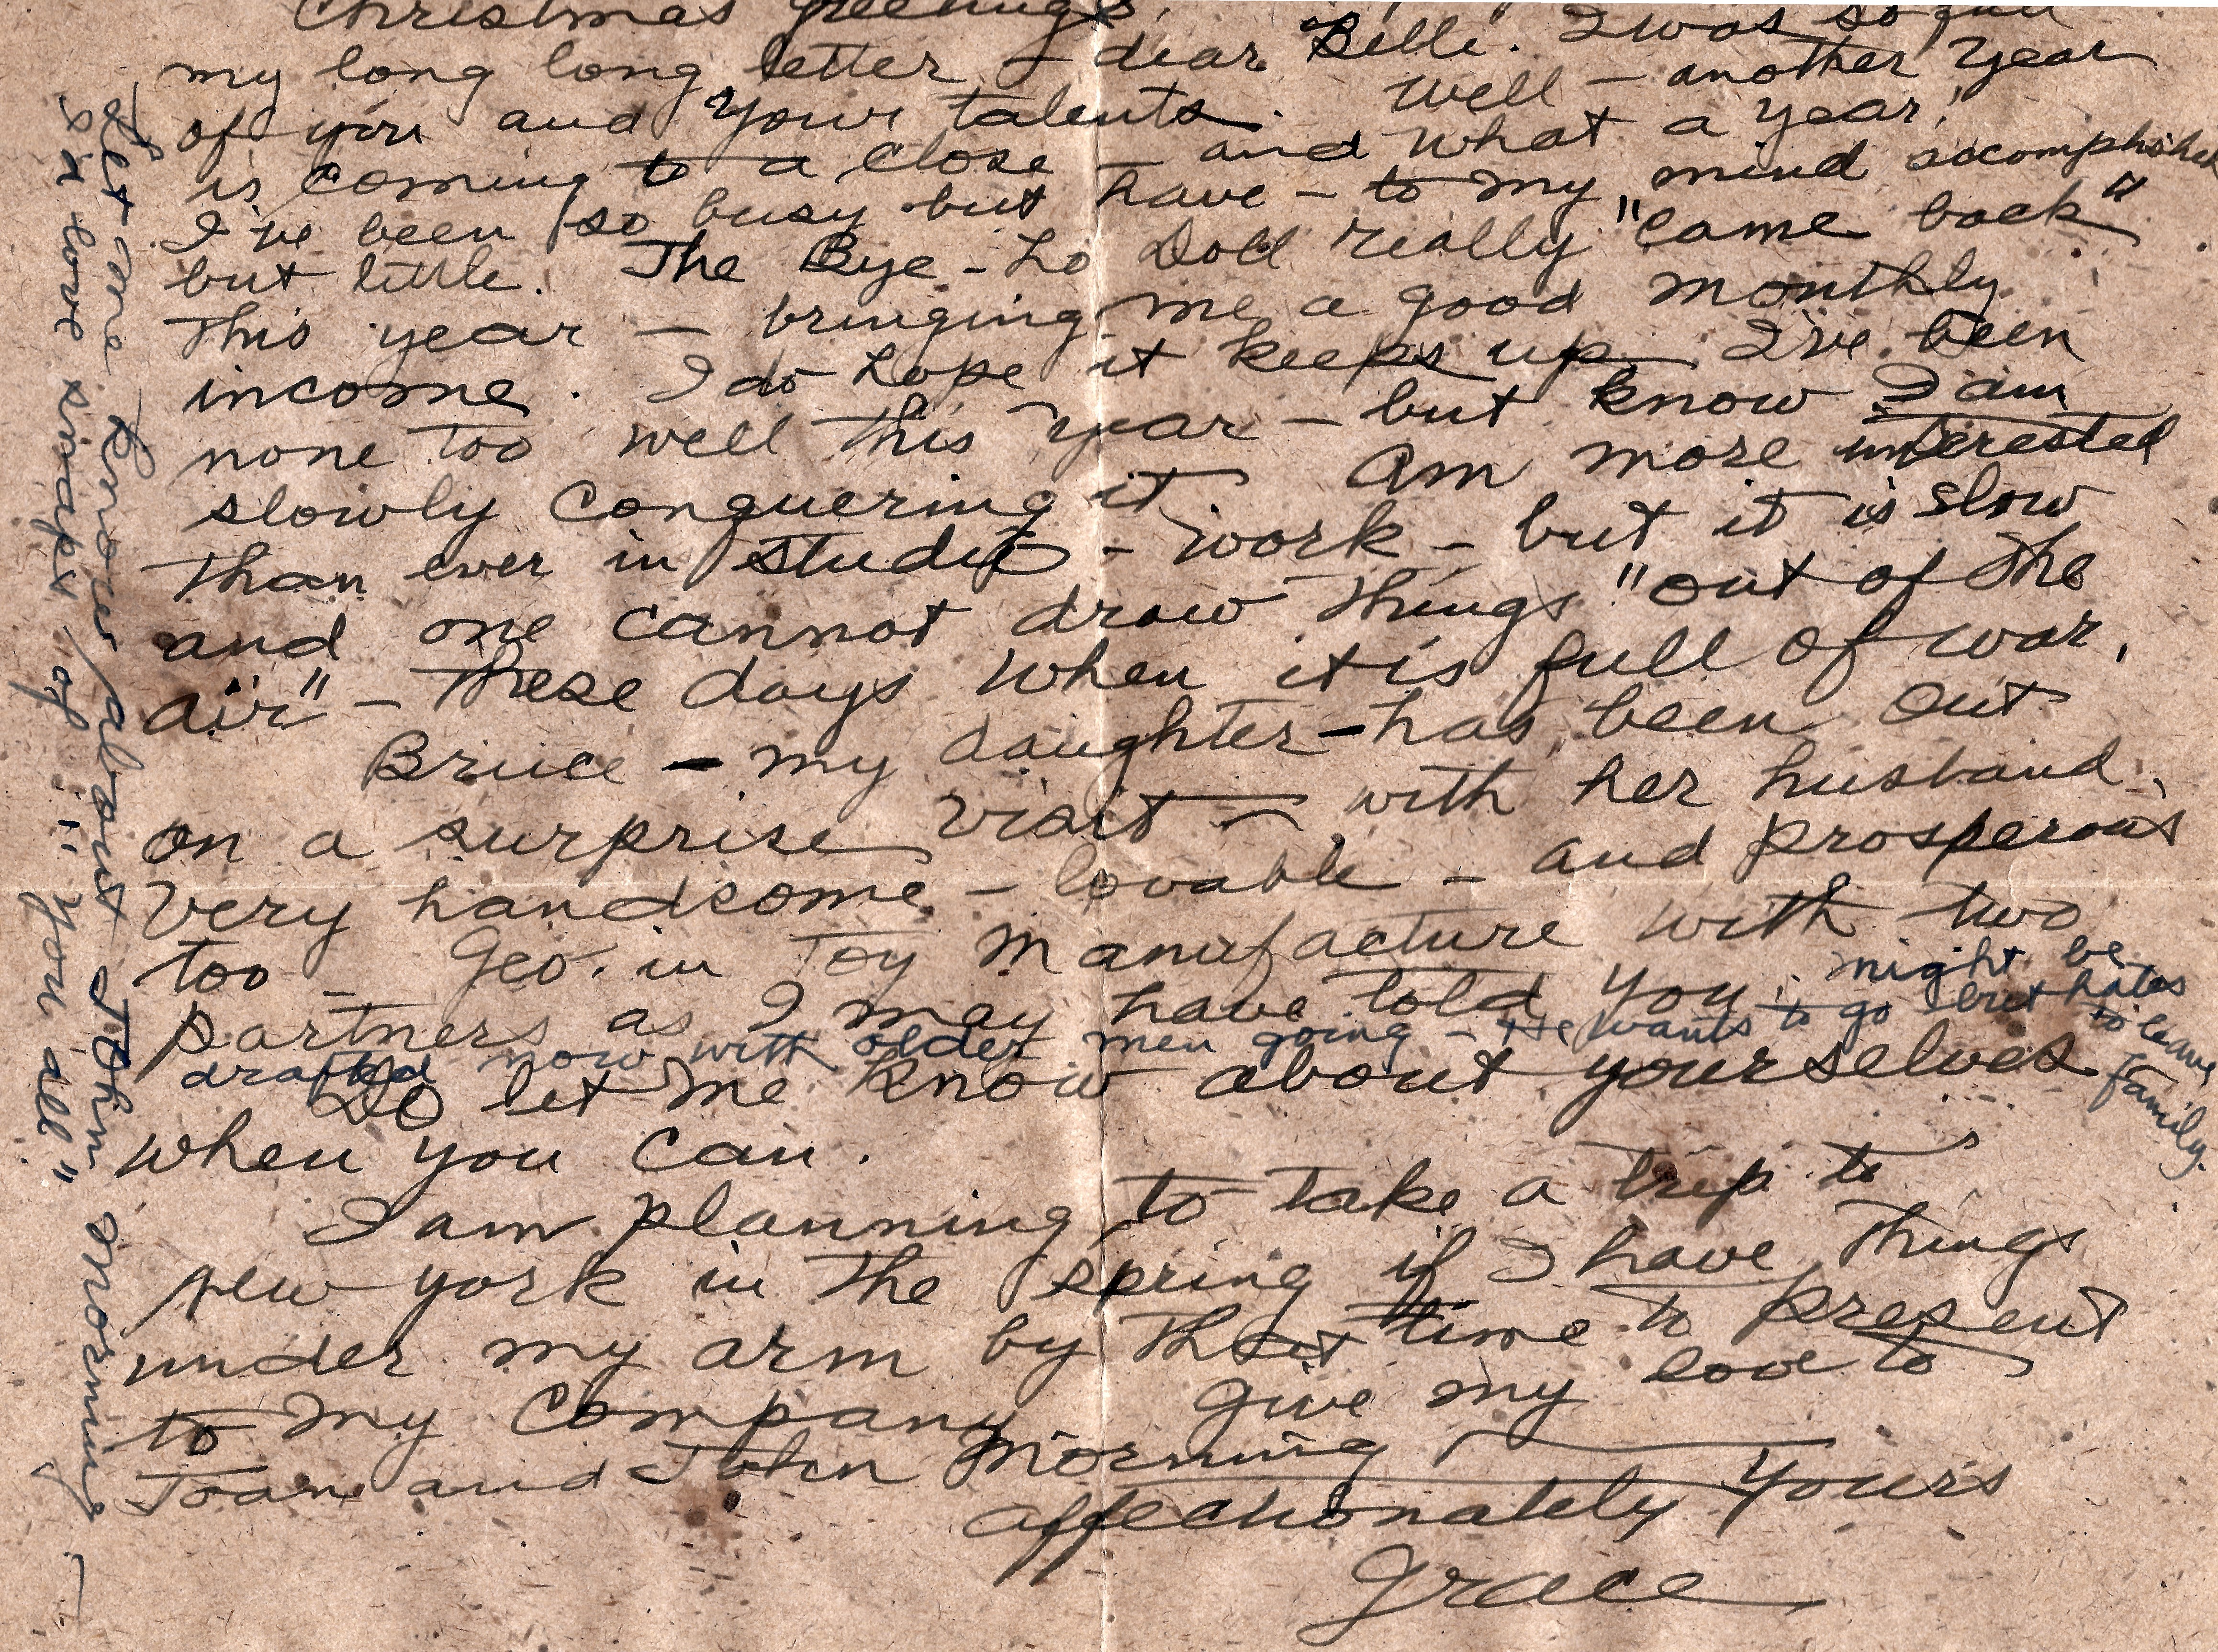 Christmas Greetings,
my long long letter - dear Belle. I was so full
of you and your talents. Well - another year
is coming to a close - and what a year!
I've been so busy but have - to my mind accomplished
but little. The Bye-Lo Doll really "came back"
this year - bringing me a good monthly
income. I do hope it keeps up. I've been
none too well this year - but know I am
slowly conquering it. Am more interested
than ever in studio - work - but it is slow
and one cannot draw things "out of the
air" - these days when it is full of war.
Bruce - my daughter - has been out
on a surprise visit - with her husband.
Very handsome - lovable - and prosperous
too - Geo. in Toy Manufacture with two
partners as I may have told you, might be
drafted now with older men going - He wants to go but hates to leave family.
Do let me know about yourselves
when you can.
I am planning to take a trip to
New York in the spring if I have things
under my arm by that time to present
to my Company. Give my love to
Joan and John Morning
Affectionately Yours
Grace
Let me know about John Morning
I'd love snaps of "you all"